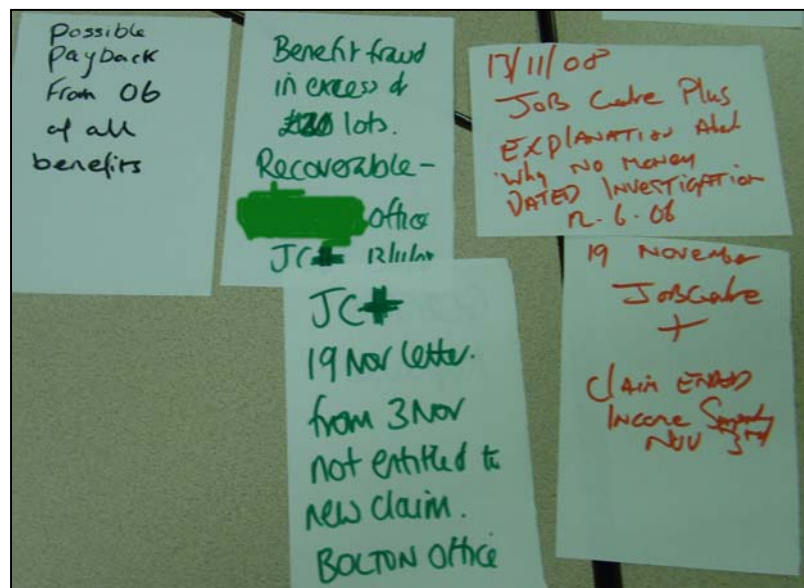 possible
payback
From 06
of all
benefits
Benefit fraud
in excess of
lots.
Recoverable -
Office
JC+ 13/11/08
13/11/08
JOB Centre Plus
EXPLANATION About
why NO MONEY
DATED INVESTIGATION
12.6.06
JC+
19 Nov letter.
from 3 Nov
not entitled to
new claim.
BOLTON Office
19 November
JOBCentre
+
Claim ENDED
Income Support
NOV 3rd